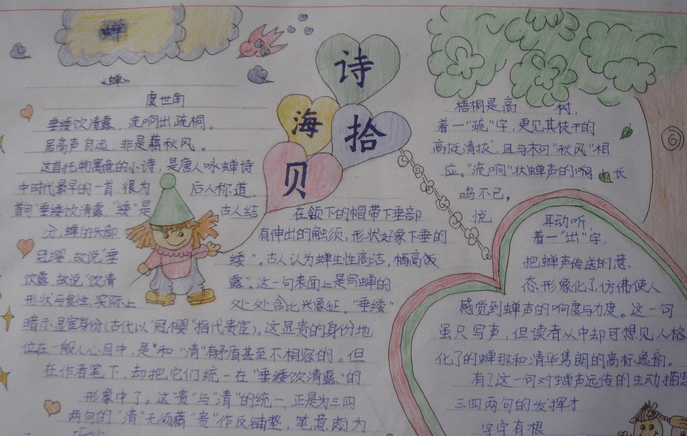 蝉
诗
海
拾
贝
《蝉》
虞世南
垂緌饮清露，流响出疏桐。
居高声自远，非是藉秋风。
这首托物寓意的小诗，是唐人咏蝉诗
中时代最早的一首，很为 后人称道
首句"垂緌饮清露"，"緌"是 古人结
在颔下的帽带下垂部
分，蝉的头部 有伸出的触须，形状好象下垂的
故说"垂 緌"。古人认为蝉生性高洁，栖高饮
饮露，故说"饮清 露"。这一句表面上是写蝉的
形状与食性，实际上 处处含比兴象征，"垂緌"
暗示显宦身份(古代以"冠缨"指代贵宦)。这显贵的身份地
位在一般人心目中，是和"清"有矛盾甚至不相容的。但
在作者笔下，却把它们统一在"垂緌饮清露"的
形象中了。这"贵"与"清"的统一，正是为三四
两句的"清"无须藉"贵"作反铺垫，笔意颇为
梧桐是高 树，
着一"疏"字，更见其枝干的
高挺清拔，且与末句"秋风"相
应。"流响"状蝉声的 长
鸣不已，
悦 耳动听，
着一"出"字，
把蝉声传送的意
态形象化了，仿佛使人
感觉到蝉声的响度与力度。这一句
虽只写声，但读者从中却可想见人格
化了的蝉那和清华隽朗的高标逸韵。
有了这一句对蝉声远传的生动描
三四两句的发挥才
字字有根